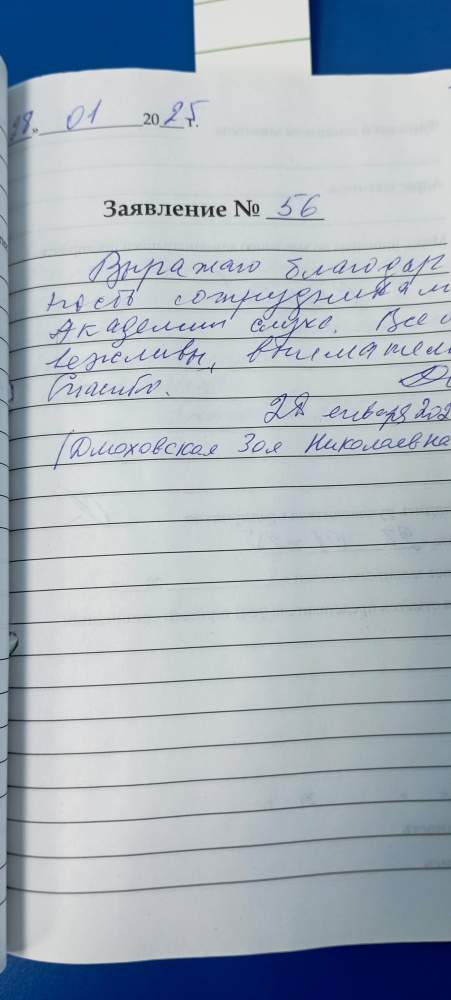 28 » 01 2025 г.
Заявление № 56
Выражаю благодар
ность сотрудникам
Академии слуха. Все
вежливы, внимател
Спасибо.
28 января 202
(Дмоховская Зоя Николаевна